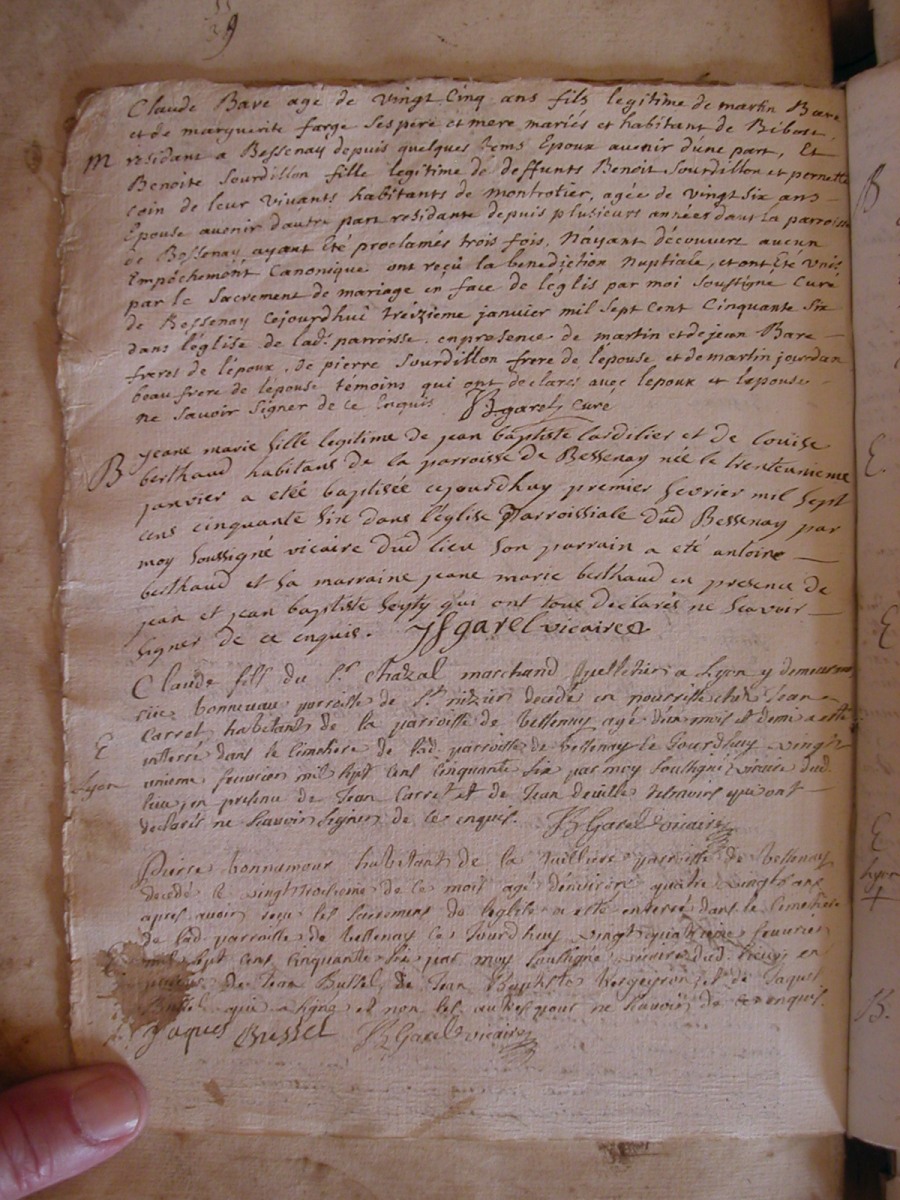 Claude Bare agé de vingt Cinq ans fils legitime de martin Bare
et de marguerite farge ses pere et mere mariés et habitant de Bibost
M
residant a Bessenay depuis quelques tems Epoux avenir d'une part, Et
Benoite Sourdillon fille legitime de deffunts Benoit Sourdillon et pernette
coin de leur vivants habitants de montrotier, agée de vingt six ans
Epouse avenir d'autre part residante depuis plusieurs années dans la parroisse
de Bessenay ayant été proclamés trois fois, N'ayant découvert aucun
Empéchemént Canonique ont reçu la benediction Nuptiale, et ont Eté Unis
par le Sacrement de mariage en face de l'eglis par moi Soussigne Curé
de Bessenay cejourdhui treizieme janvier mil sept cent Cinquante Six
dans l'église de lad. parroisse. en presence de martin et de jean Bare
freres de l'époux, de pierre Sourdillon frere de l'epouse et de martin jourdan
beau frere de l'épouse témoins qui ont declaré avec lepoux et lepouse
ne savoir signer de ce Enquis garel curé
B
jeane marie fille legitime de jean baptiste lardilier et de louise
berthaud habitans de la parroisse de Bessenay née le trenteunieme
janvier a etée baptisée cejourdhuy premier fevrier mil sept
cens cinquante Six dans l'église Parroissiale dud Bessenay par
moy soussigné vicaire dud lieu son parrain a eté antoine
berthaud et sa marraine jeane marie berthaud en presence de
jean et jean baptiste qui ont tous declarés ne scavoir
signer de ce enquis. garel vicaire
Claude fils du Sr. Chazal marchand a Lyon y demeurant
rue bonneveau parroisse de St. nizier decedé en nourrisse chez Jean
Carret habitant de la parroisse de bessenay agé d'un mois et demi a esté
E
interré dans le cimetiere de lad. parroisse de bessenay le Jourdhuy vingt
Lyon
unieme fevrier mil sept cent cinquante six par moy soussigné vicaire dud.
lieu, en presence de Jean Carret et de Jean deville témoins qui ont
declarés ne scavoir signer de ce enquis. Garel vicaire
Pierre bonnamour habitant de la parroisse de bessenay
decedé le vingttroisieme de ce mois agé denviron quatre vingts ans
apres avoir reçu les sacremens de l'eglise a esté enterré dans le cimetiere
de lad. parroisse de bessenay ce Jourdhuy vingt quatrieme fevrier
mil sept cent cinquante six par moy soussigné vicaire dud. lieu en
presence de Jean Bussel, de Jean Baptiste et de Jaques
Bussel qui a signé et non les autres pour ne scavoir de ce enquis.
Jaques Bussel Garel vicaire
B
E
E
E
Lyon
B.